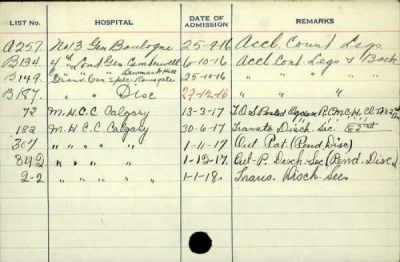 LIST No. HOSPITAL DATE OF ADMISSION REMARKS
A257. No 13 Gen Boulogne 25-9-16 Accl. Count Legs
B134. 4th Lond Gen Camberwell 6-10-16 Acc Cont Legs & Back
B149. Denmark Hill
Can Spec. Ramsgate 25-10-16 " " "
B187. " " Disc 27-12-16 " " "
72 M.H.C.C. Calgary 13-3-17 T.O.S. Posted Ogden R.C.M.C.H.
182 M.H.C.C. Calgary 30-6-17 Trans to Disch. Sec. "E" Unit
307 " " " " 1-11-17 Out Pat. (Pend Disc)
342 " " " 1-12-17. Out-P. Disch. Sec (Pend. Disc.)
2-2 " " " " 1-1-18. Trans. Disch Sec